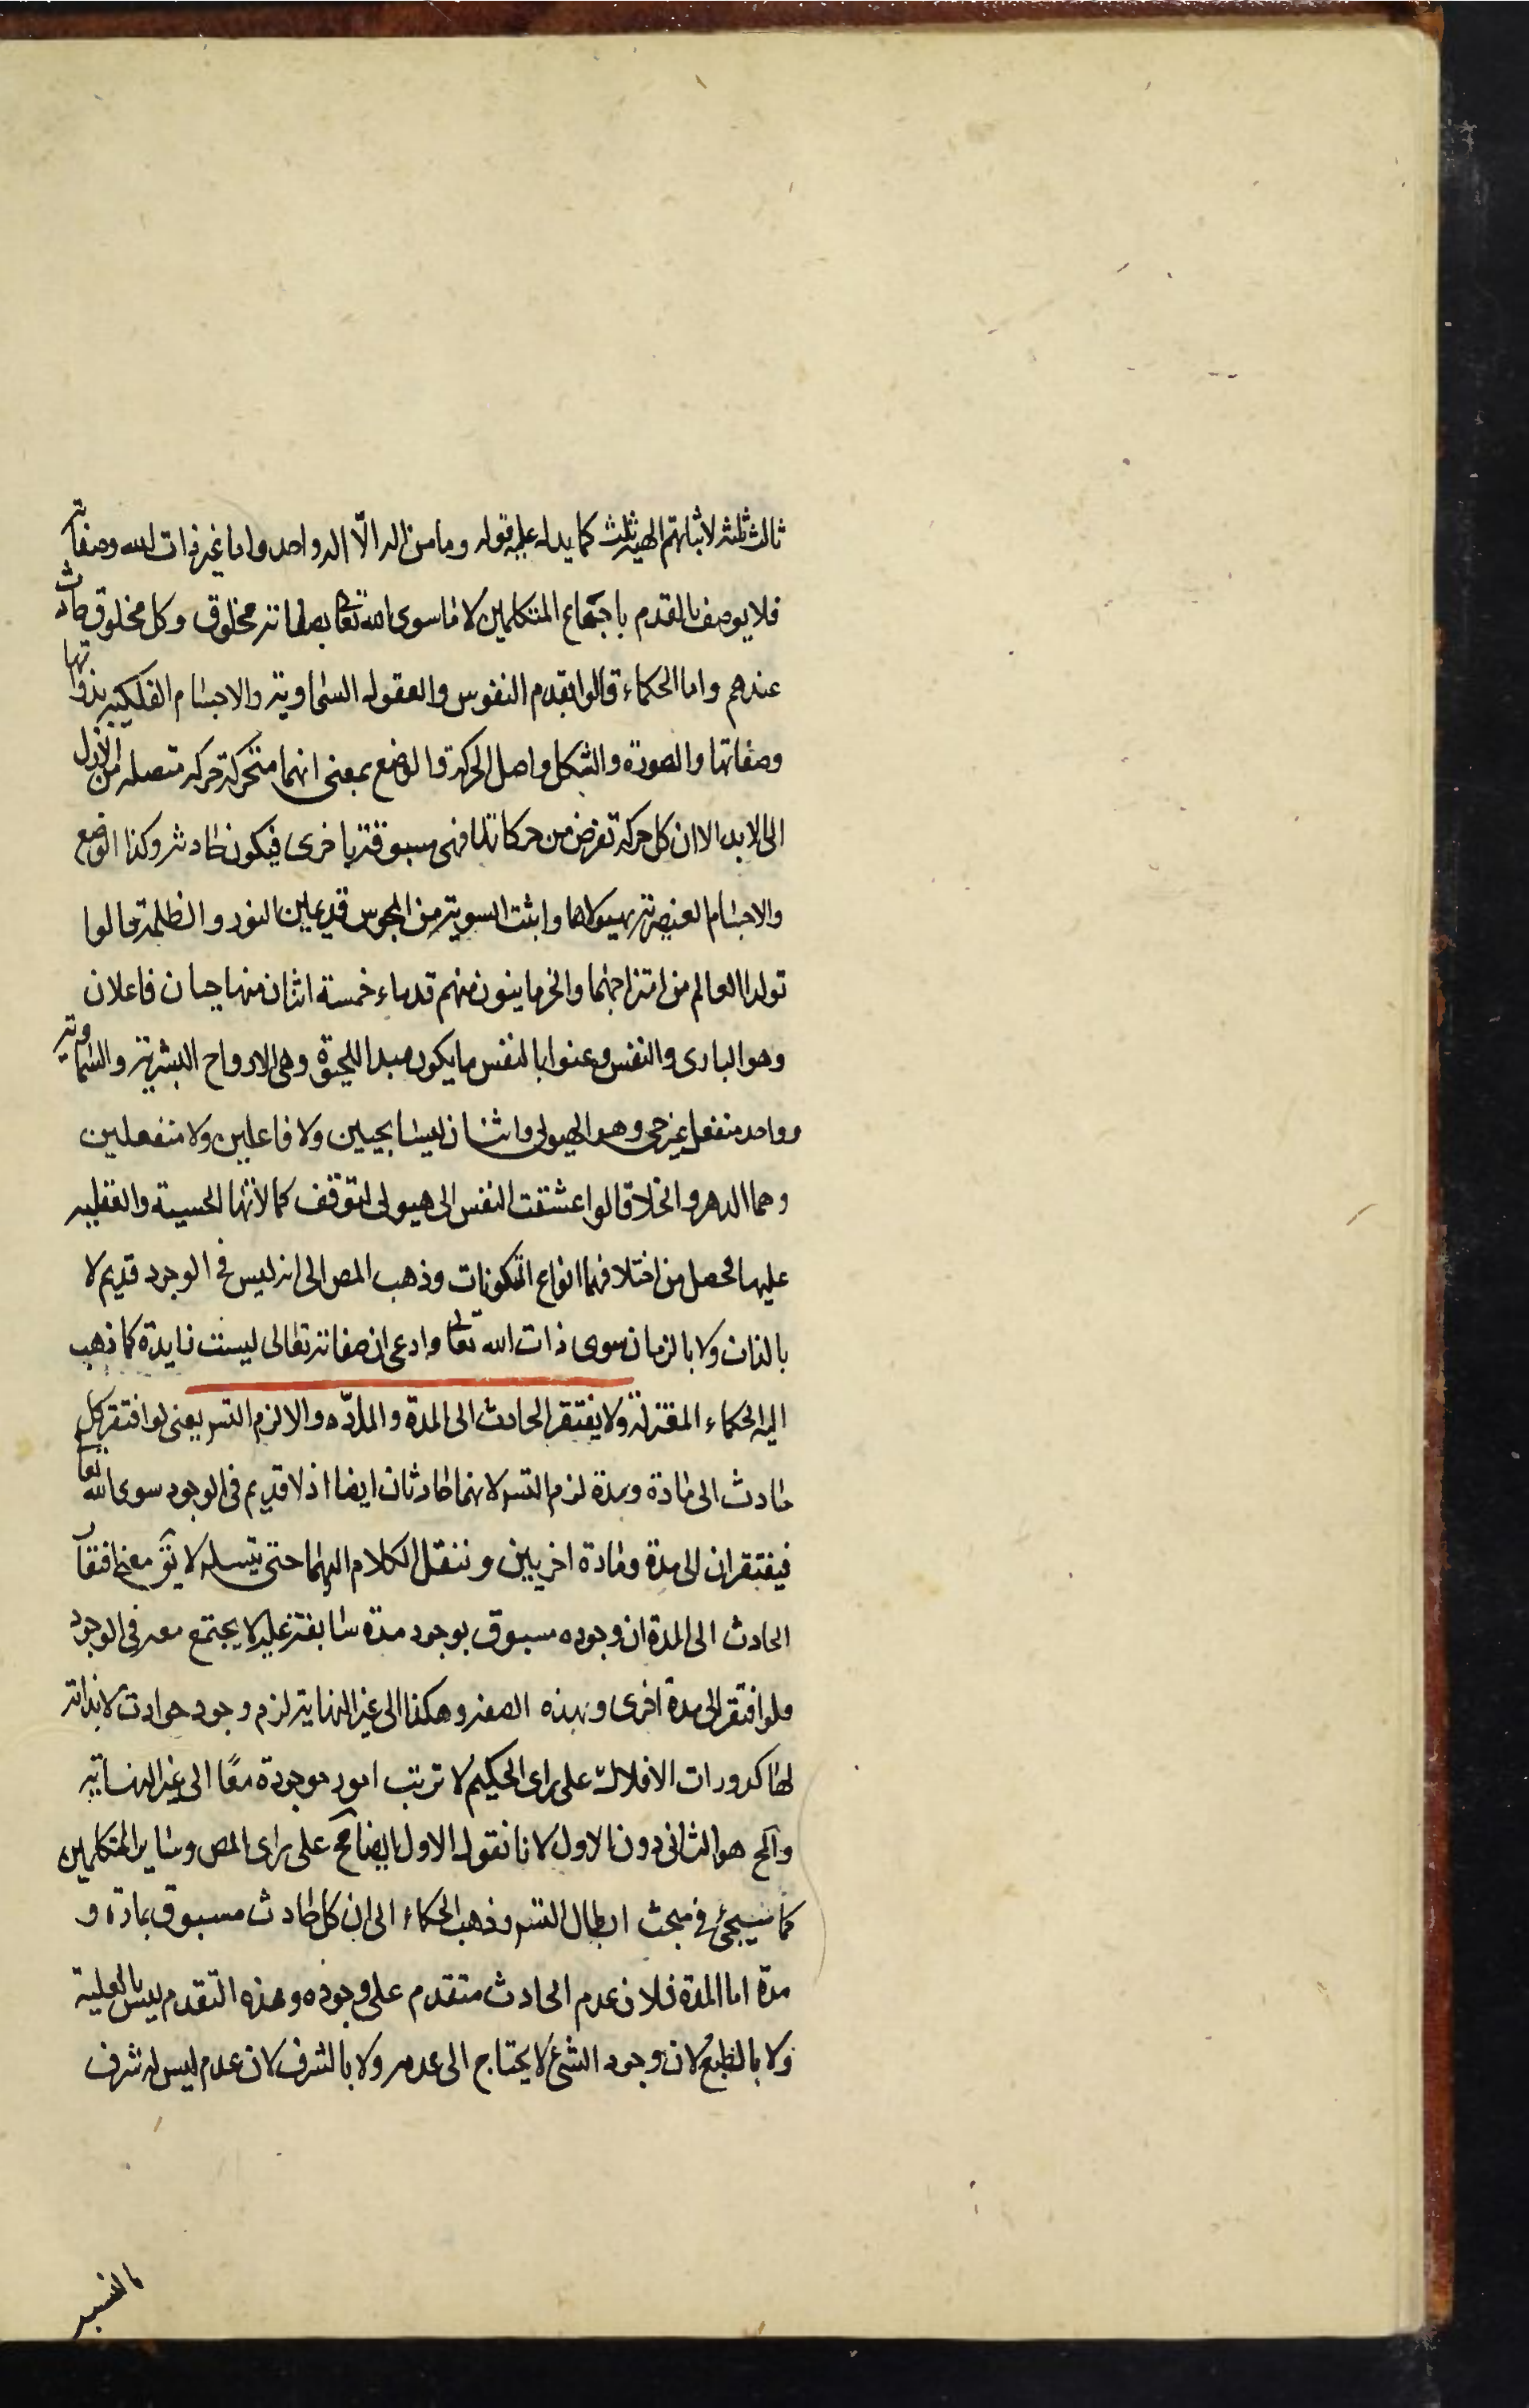 ثالث ثلثة لاثباتهم الهية ثلث كما يدل عليه قوله وما من اله الّا اله واحد واما غير ذات الله وصفاته
فلا يوصف بالقدم باجماع المتكلمين لان ما سوى الله تعالى بصفاته مخلوق وكل مخلوق حادث
عندهم واما الحكماء قالوا بقدم النفوس والعقول السماوية والاجسام الفلكية بذواتها
وصفاتها والصورة والشكل واصل الحركة والوضع بمعنى انهما متحركة حركة متصلة من الازل
الى الابد الا ان كل حركة تفرض من حركاتها فهي مسبوقة باخرى فيكون حادثة وكذا الوضع
والاجسام العنصرية بهيولاها واثبت الثنوية من المجوس قديمين النور والظلمة قالوا
تولد العالم من امتزاجهما والحرمانيون منهم قدماء خمسة اثنان منها حيان فاعلان
وهو البارى والنفس وعنوا بالنفس ما يكون مبدا للحيوة وهى الارواح البشرية والسماوية
وواحد منفعل غير حى وهو الهيولى واثنان ليسا بحيين ولا فاعلين ولا منفعلين
وهما الدهر والخلا قالوا عشقت النفس الى هيولى لتوقف كمالاتها الحسية والعقلية
عليها فحصل من اختلافهما انواع المكونات وذهب المص الى انه ليس فى الوجود قديم لا
بالذات ولا بالزمان سوى ذات الله تعالى وادعى ان صفاته تعالى ليست زايدة كما ذهب
اليه الحكماء المعتزلة ولا يفتقر الحادث الى المدة والمادّه والا لزم التس يعنى لو افتقر كل
حادث الى مادة ومدة لزم التس لانهما حادثان ايضا اذ لا قديم فى الوجود سوى الله تعالى
فيفتقران الى مدة ومادة اخريين وننقل الكلام اليهما حتى يتسلسل لا يق معنى افتقار
الحادث الى المدة ان وجوده مسبوق بوجود مدة سابقة عليه لا يجتمع معه فى الوجود
ولو افتقر الى مدة اخرى وبهذه الصفة وهكذا الى غير النهاية لزم وجود حوادث لا بداية
لها كدورات الافلاك على راى الحكيم لا ترتب امور موجودة معًا الى غير النهاية
والمح هو الثانى دون الاول لانا نقول الاول ايضا مح على راى المص وساير المتكلمين
كما سيجئ فى مبحث ابطال التس وذهب الحكماء الى ان كل حادث مسبوق بمادة و
مدة اما المدة فلان عدم الحادث متقدم على وجوده وهذه التقدم ليس بالعلية
ولا بالطبع لان وجود الشئ لا يحتاج الى عدمه ولا بالشرف لان عدم ليس له شرف
بالنسبة